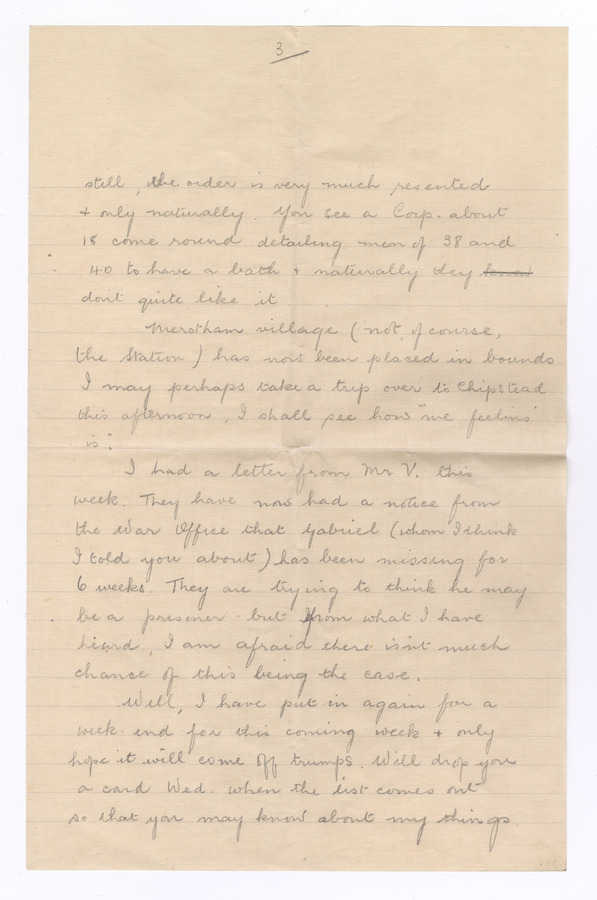 3
still, the order is very much resented
& only naturally. You see a Corp. about
18 come round detailing men of 38 and
40 to have a bath & naturally they
don't quite like it.
Merstham village (not, of course,
the Station) has now been placed in bounds
I may perhaps take a trip over to Chipstead
this afternoon, I shall see how "me feelins'
is".
I had a letter from Mr V. this
week. They have now had a notice from
the War Office that Gabriel (whom I think
I told you about) has been missing for
6 weeks. They are trying to think he may
be a prisoner but from what I have
heard, I am afraid there isn't much
chance of this being the case.
Well, I have put in again for a
week-end for this coming week & only
hope it will come off trumps. Will drop you
a card Wed. when the list comes out
so that you may know about my things.